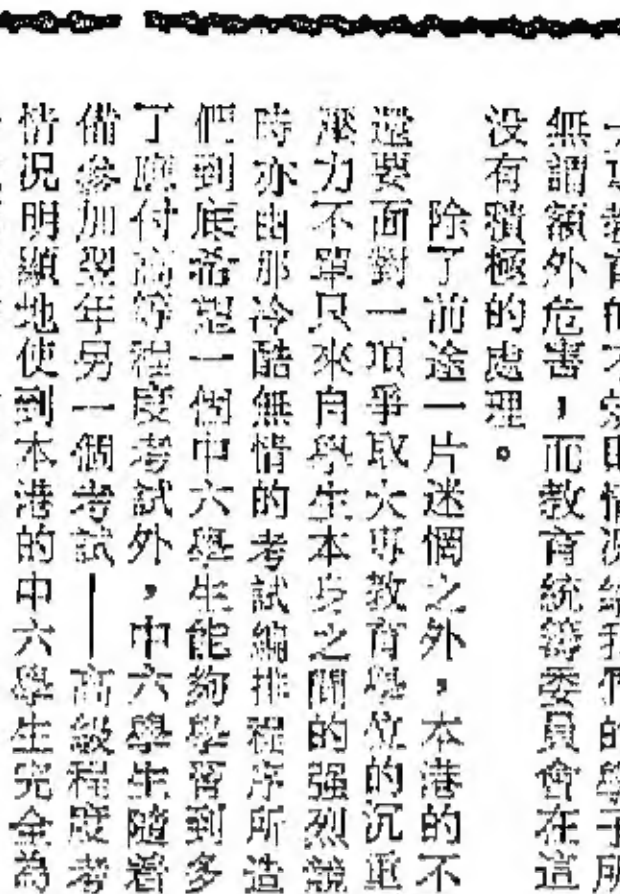 大專教育的不明朗情況給我們的學子所
無謂額外危害，而教育統籌委員會在這
没有積極的處理。
除了前途一片迷惘之外，本港的不
還要面對一項爭取大專教育學位的沉重
壓力不單只來自學生本身之間的强烈競
時亦由那冷酷無情的考試編排程序所造
們到底希望一個中六學生能夠學習到多
了應付高等程度考試外，中六學生隨着
備參加翌年另一個考試——高級程度考
情况明顯地使到本港的中六學生完全為